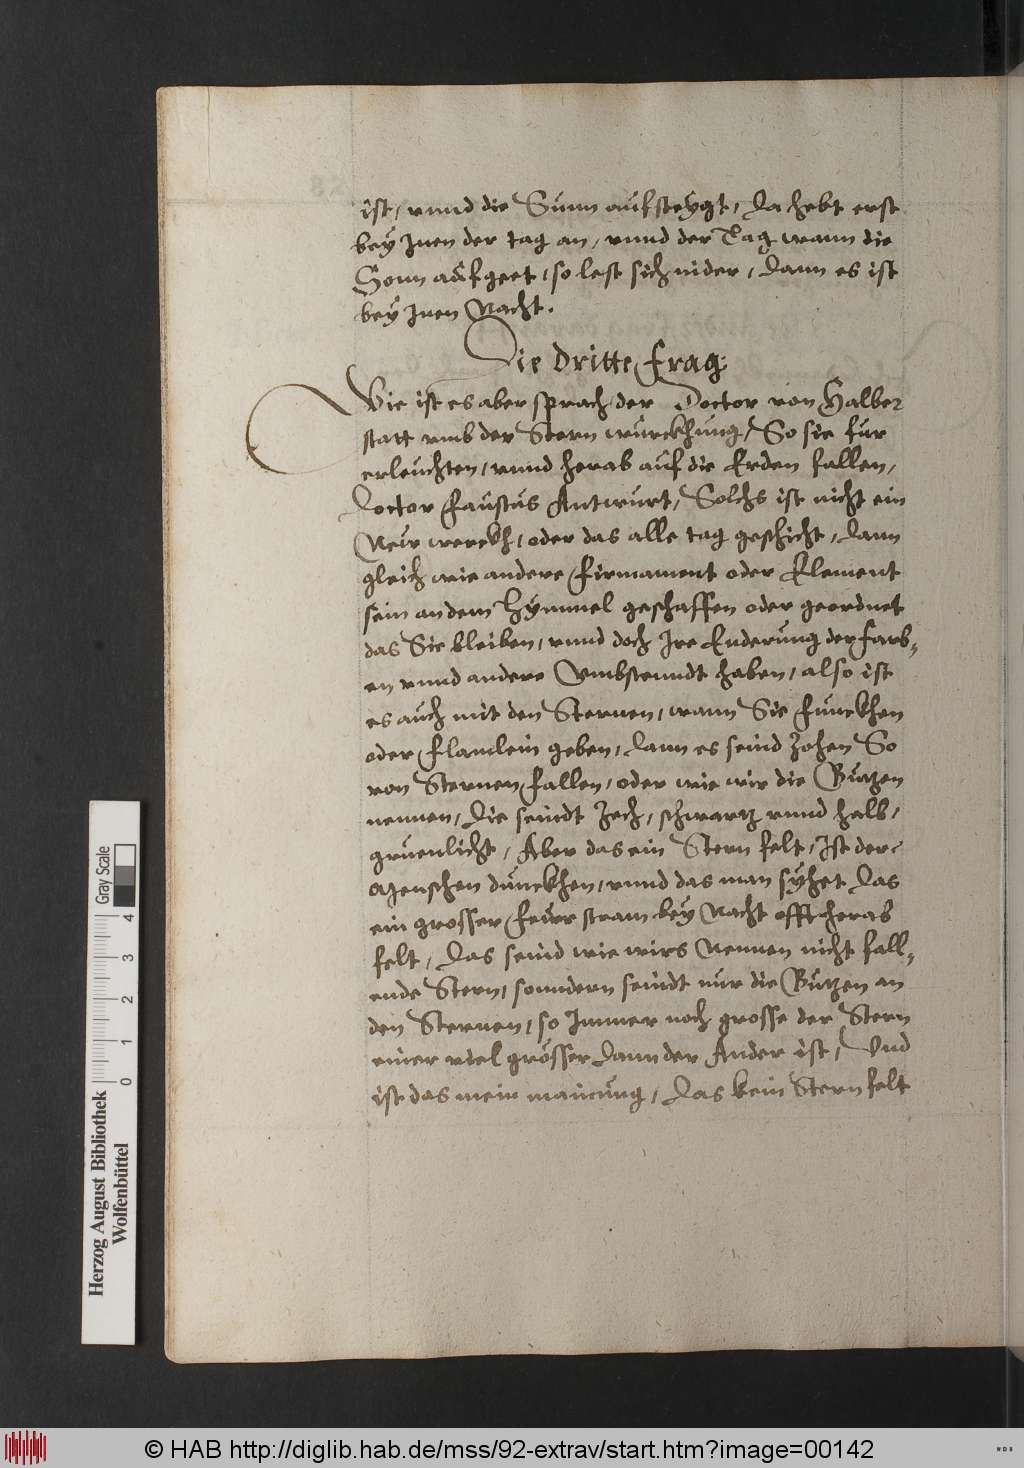 ist, vnnd die Sunn aufsteygt, da hebt erst
bey Inen der tag an, vnnd der Tag wann die
Sonn aufgeet, so lest sich nider, dann es ist
bey Inen Nacht.
Die dritte Frag.
Wie ist es aber sprach der Doctor von Halber
statt vmb der Stern würckhung, So sie fur
erleuchten, vnnd herab auf die Erden fallen,
Doctor Faustus Antwurt, Solchs ist nicht ein
New werckh, oder das alle tag geschicht, dann
gleich wie andere Firmament oder Element
sein an dem Hymmel geschaffen oder geordnet
das Sie bleiben, vnnd doch Ire Enderung der Farb-
en vnnd andere Vmbstenndt haben, also ist
es auch mit den Sternen, wann Sie Funckhen
oder Flamlein geben, dann es seind Zohen So
von Sternen fallen, oder wie wir die Butzen
nennen, die seindt Zech, schwartz vnnd halb,
gruenlicht, Aber das ein Stern felt, Ist der
Menschen dünckhen, vnnd das man syhet das
ein grosser Feurstram bey Nacht offt herab
felt, das seind wie wirs Nennen nicht fall-
ende Stern, sonndern seindt nur die Butzen an
den Sternen, so Immer noch grosse der Stern
einer viel grösser dann der Ander ist, Vnd
ist das mein mainung, das kein Stern felt
Herzog August Bibliothek
Wolfenbüttel
Gray Scale
0 1 2 3 4
© HAB http://diglib.hab.de/mss/92-extrav/start.htm?image=00142
WDB